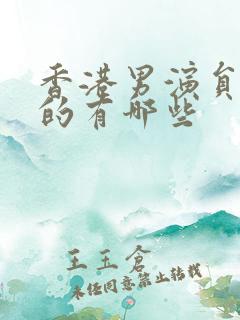 香港男演员
的有哪些
王玉仓
未经同意禁止转载